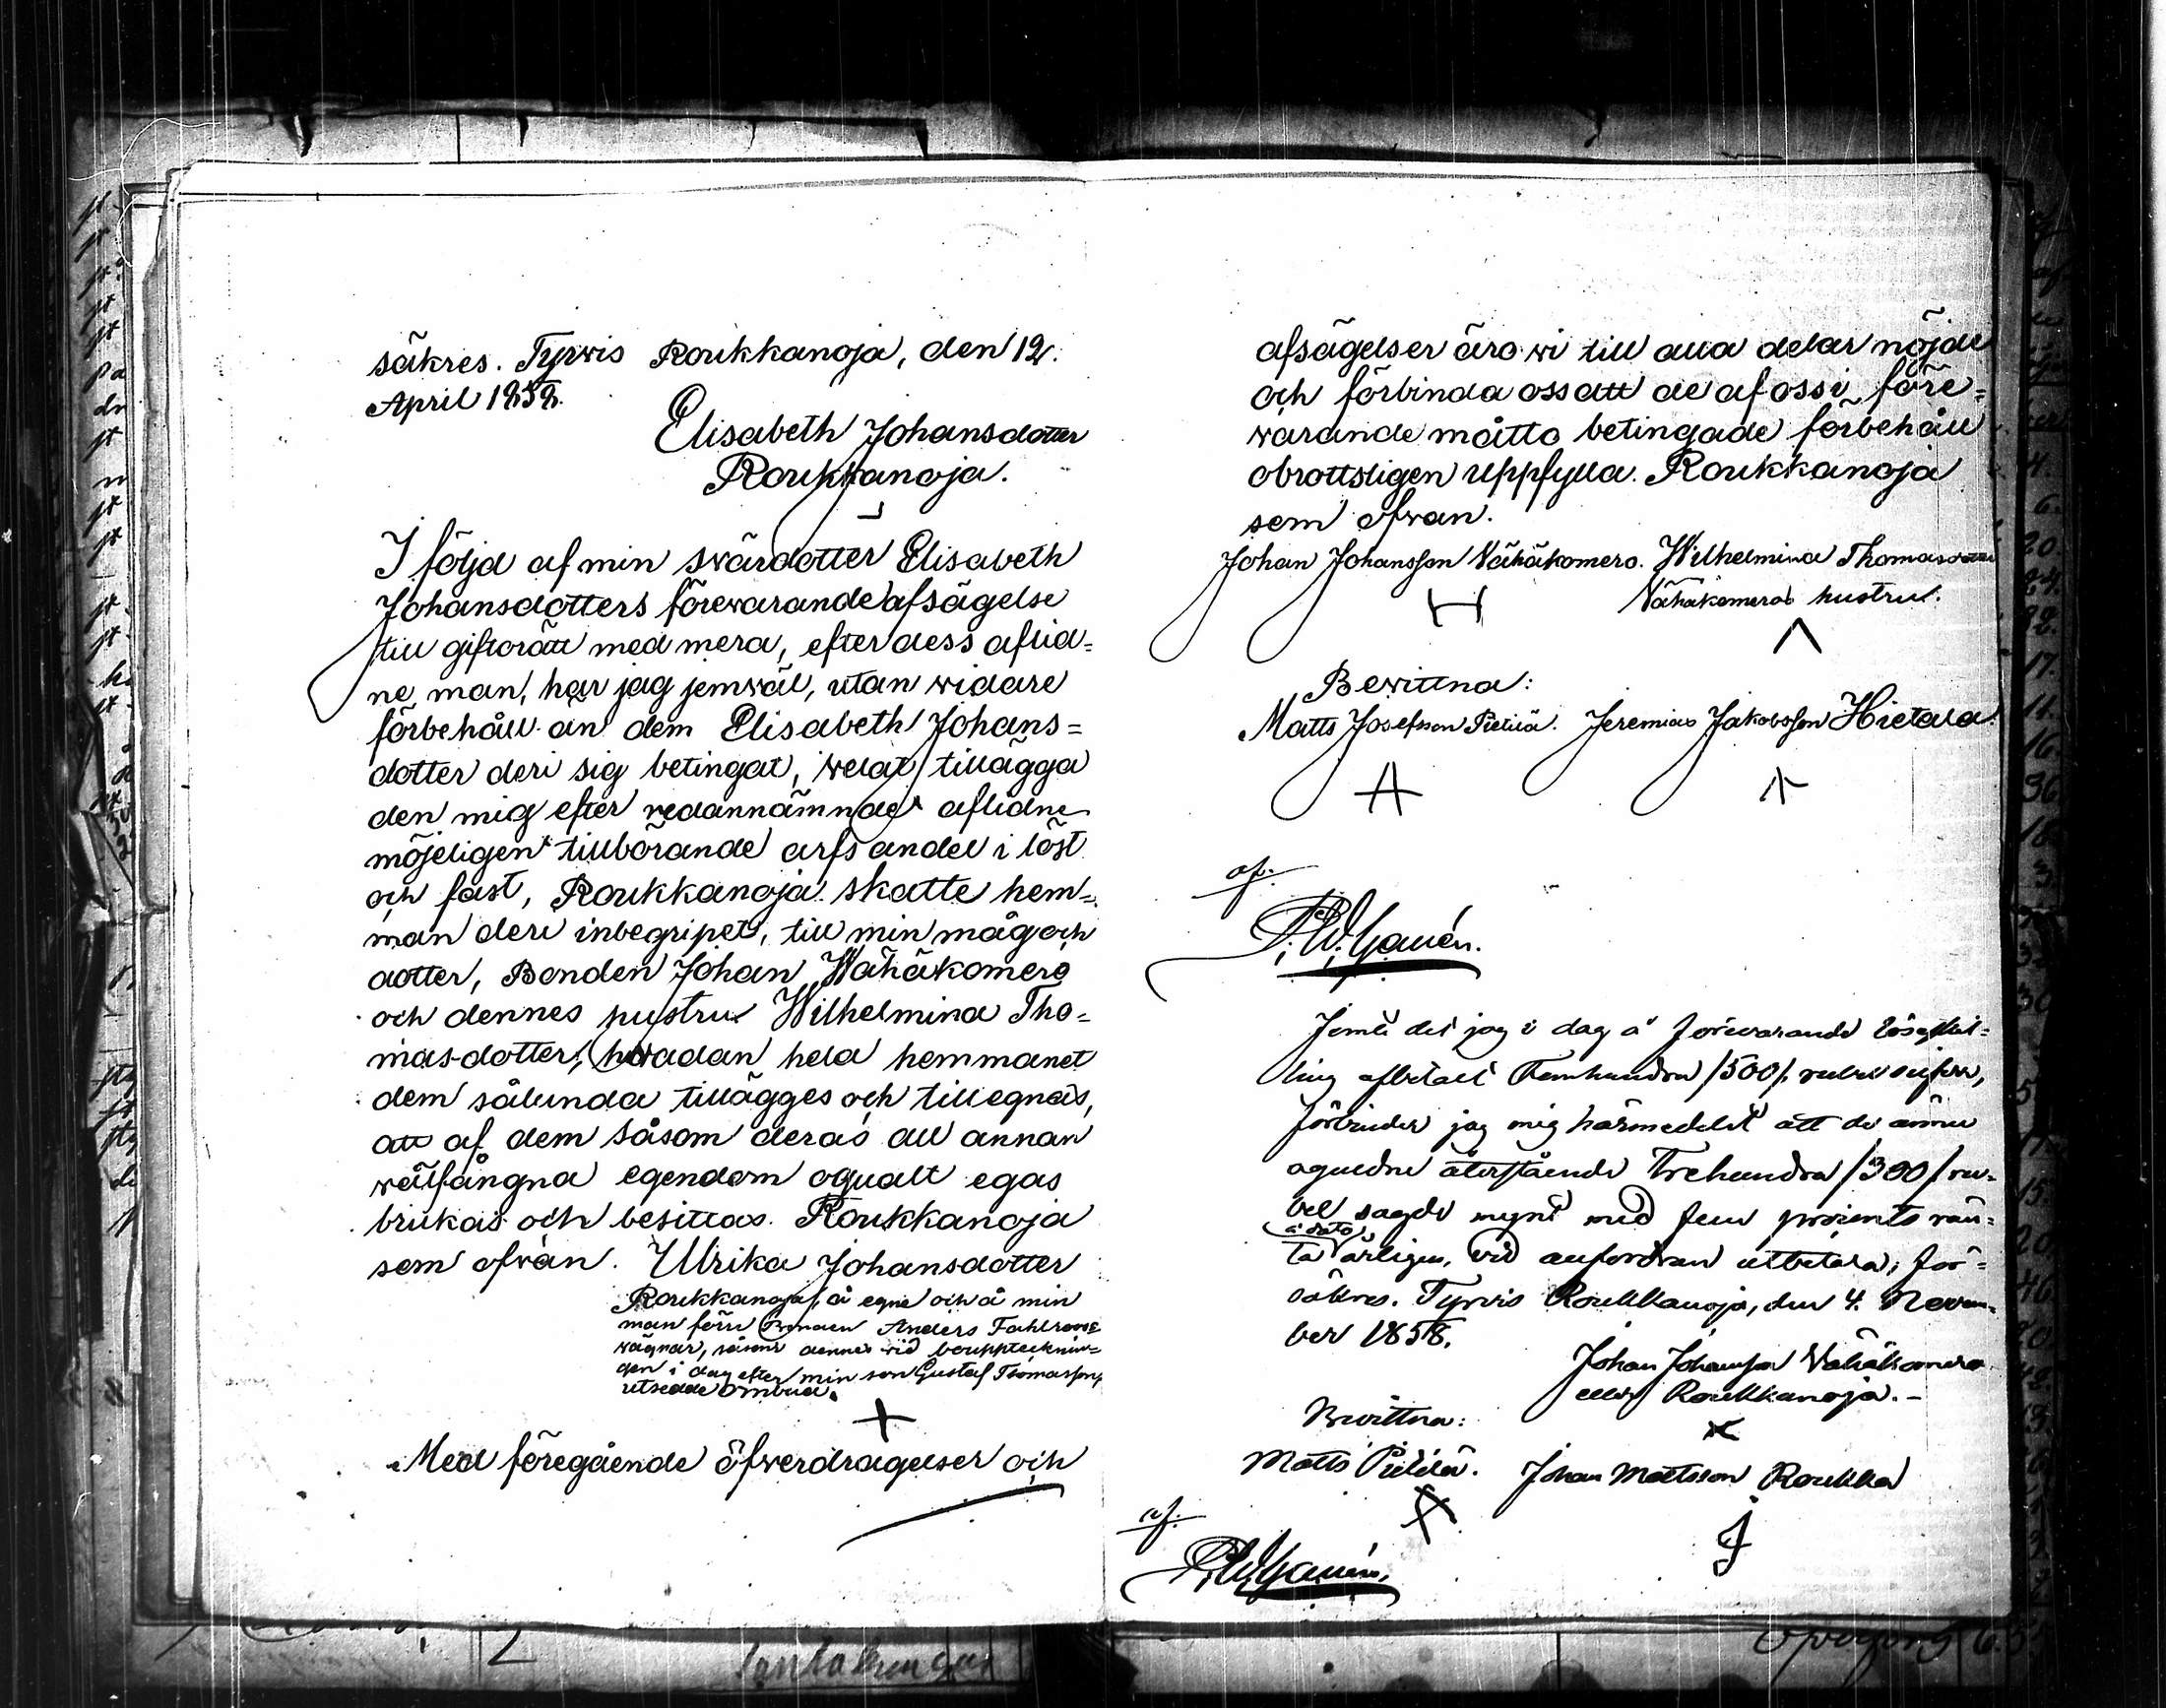 säkres. Tyrvis Roukkanoja, den 12.
April 1858.
Elisabeth Johansdotter
Roukkanoja.
I följd af min svärdotter Elisabeth
Johansdotters förewarande afsägelse
till giftorätt med mera, efter dess aflid=
ne man, har jag jemwäl, utan widare
förbehåll än dem Elisabeth Johans=
dotter deri sig betingat, welat tillägga
den mig efter redannämnde aflidne
möjeligen tillbörande arfs andel i löst
och fast, Roukkanoja skatte hem=
man deri inbegripet, till min måg och
dotter, Bonden Johan Wähäkomero
och dennes hustru Wilhelmina Tho=
mas-dotter, hwadan hela hemmanet
dem sålunda tillägges och tillegnas,
att af dem såsom deras all annan
wälfångna egendom oqualt egas
brukas och besittas. Roukkanoja
som ofvan. Ulrika Johansdotter
Roukkanoja, å egne och å min
man förre Bonden Anders Fahlroos
wägnar, såsom dennes vid boupptecknin=
gen i dag efter min son Gustaf Thomasson,
utsedde ombud.
Med föregående öfwerdragelser och
afsägelser äro wi till alla delar nöjde
och förbinda oss att de af oss i före=
warande måtto betingade förbehåll
obrottsligen uppfylla. Roukkanoja
som ofvan.
Johan Johansson Vähäkomero. Wilhelmina Thomasdotter
Vähäkomero hustru.
Bewittna:
Matts Josefsson Pietilä. Jeremias Jakobsson Hietala.
af:
Jemte det jag i dag å förewarande lösesskil=
ling afbetalt Femhundra /500/ rubel silfwer,
förbinder jag mig härmedelst att de ännu
oguldne återstående Trehundra /300/ ru=
bel sagde mynt med fem procents rän=
à dato
ta årligen, vid anfordran utbetala; för=
säkres. Tyrvis Roukkanoja, den 4. Novem=
ber 1858.
Johan Johansson Vähäkomero
eller Roukkanoja.-
Bevittna:
Matts Pietilä. Johan Mattsson Roukka
af: